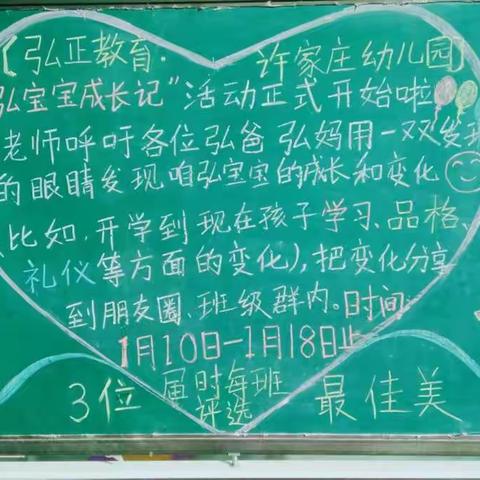 【弘正教育·许家庄幼儿园】
弘宝宝成长记”活动正式开始啦
老师呼吁各位弘爸弘妈用一双发现
的眼睛发现咱弘宝宝的成长和变化
(比如,开学到现在孩子学习、品格、
礼仪等方面的变化),把变化分享
到朋友圈、班级群内。时间
1月10日—1月18日止
届时每班
评选
3位 最佳美